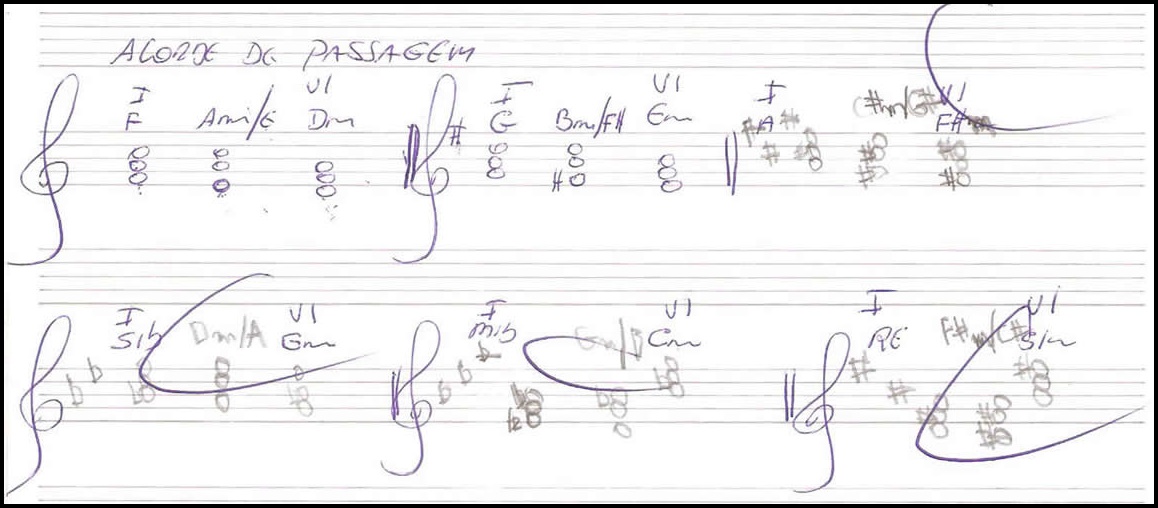 ACORDE DE PASSAGEM
I VI I VI I VI
F Ami/E Dm G Bm/F# Em A C#m/G# F#m
I VI I VI I VI
Sib Dm/A Gm Mib Gm/B Cm RE F#m/C# Sim